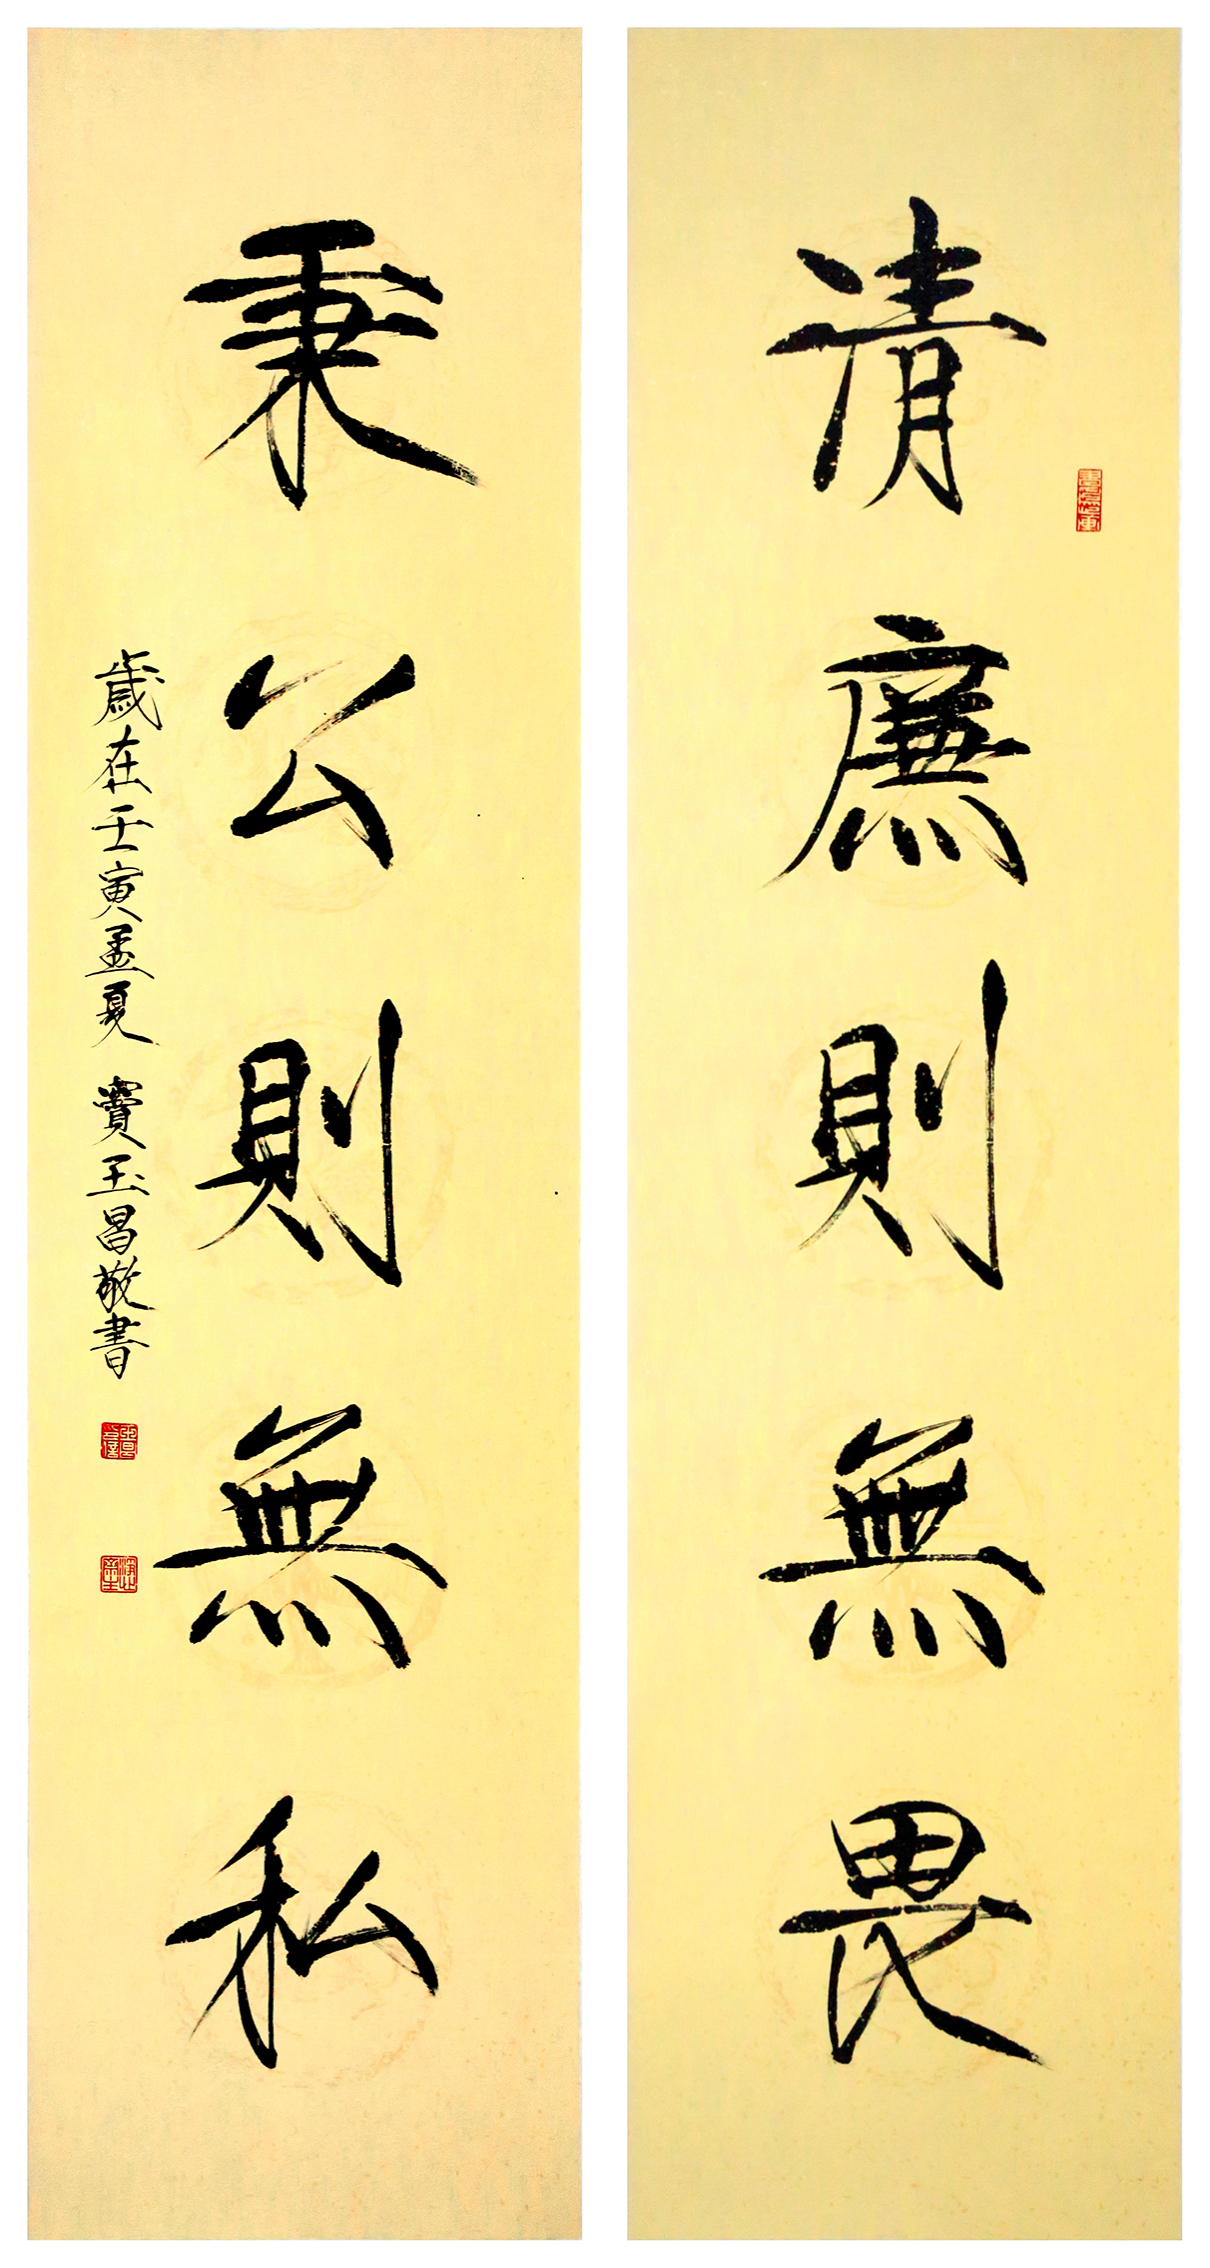 清廉則無畏
秉公則無私
歲在壬寅孟夏 賣玉昌敬書